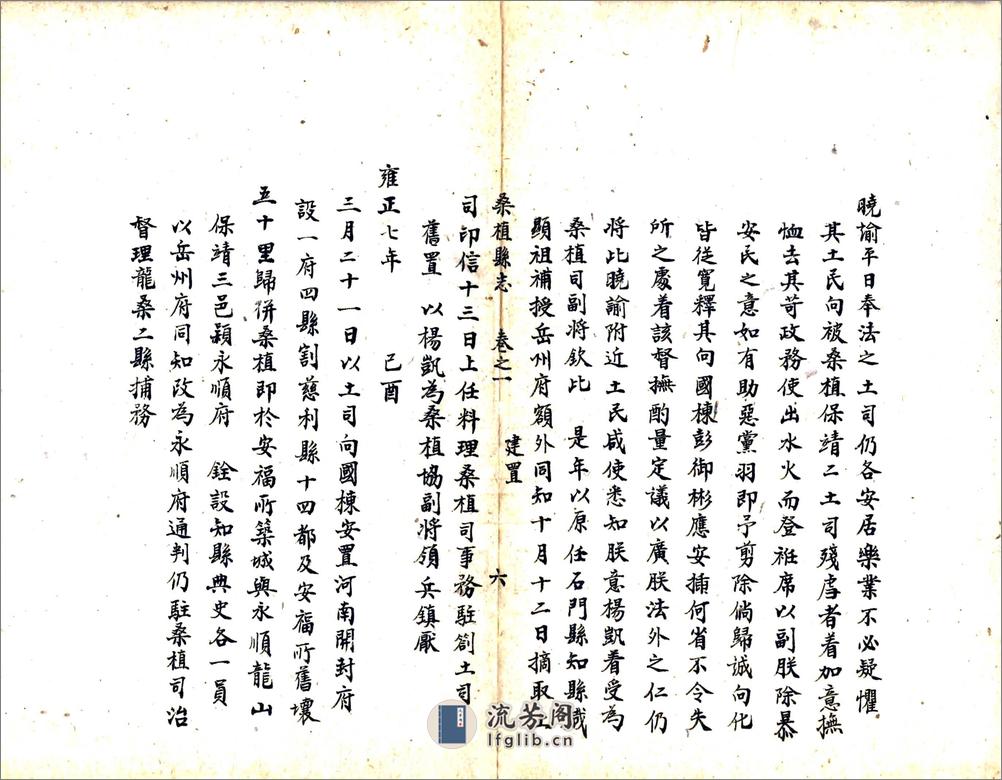 曉諭平日奉法之土司仍各安居樂業不必疑懼
其土民向被桑植保靖二土司殘虐者着加意撫
恤去其苛政務使出水火而登袵席以副朕除暴
安民之意如有助惡黨羽即予剪除倘歸誠向化
皆從寛釋其向國棟彭御彬應安揷何省不令失
所之處着該督撫酌量定議以廣朕法外之仁仍
將此曉諭附近土民咸使悉知朕意楊凱着受為
桑植司副將欽此 是年以原任石門縣知縣
顯祖補授岳州府額外同知十月十二日摘取土
桑植縣志 卷之一 建置 六
司印信十三日上任料理桑植司事務駐劄土司
舊置 以楊凱為桑植協副將領兵鎮厭
雍正七年 己酉
三月二十一日以土司向國棟安置河南開封府
設一府四縣割慈利縣十四都及安福所舊壤
五十里歸併桑植即於安福所築城與永順龍山
保靖三邑潁永順府 銓設知縣典史各一員
以岳州府同知改為永順府通判仍駐桑植司治
督理龍桑二縣捕務
流芳阁
lfglib.cn